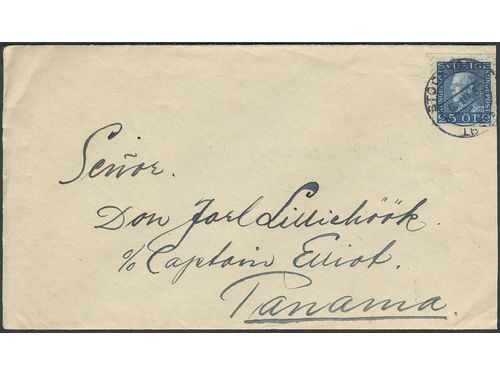 SVERIGE
25 ÖRE
Señor.
Don Jarl Lilliehöök.
c/o Captain Elliot.
Panama.